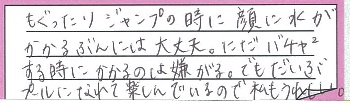 もぐったり ジャンプの時に 顔に水が
かかるぶんには大丈夫。ただバチャ²
する時にかかるのは嫌がる。でもだいぶプ
ールになれて楽しんでいるので私もうれしい。